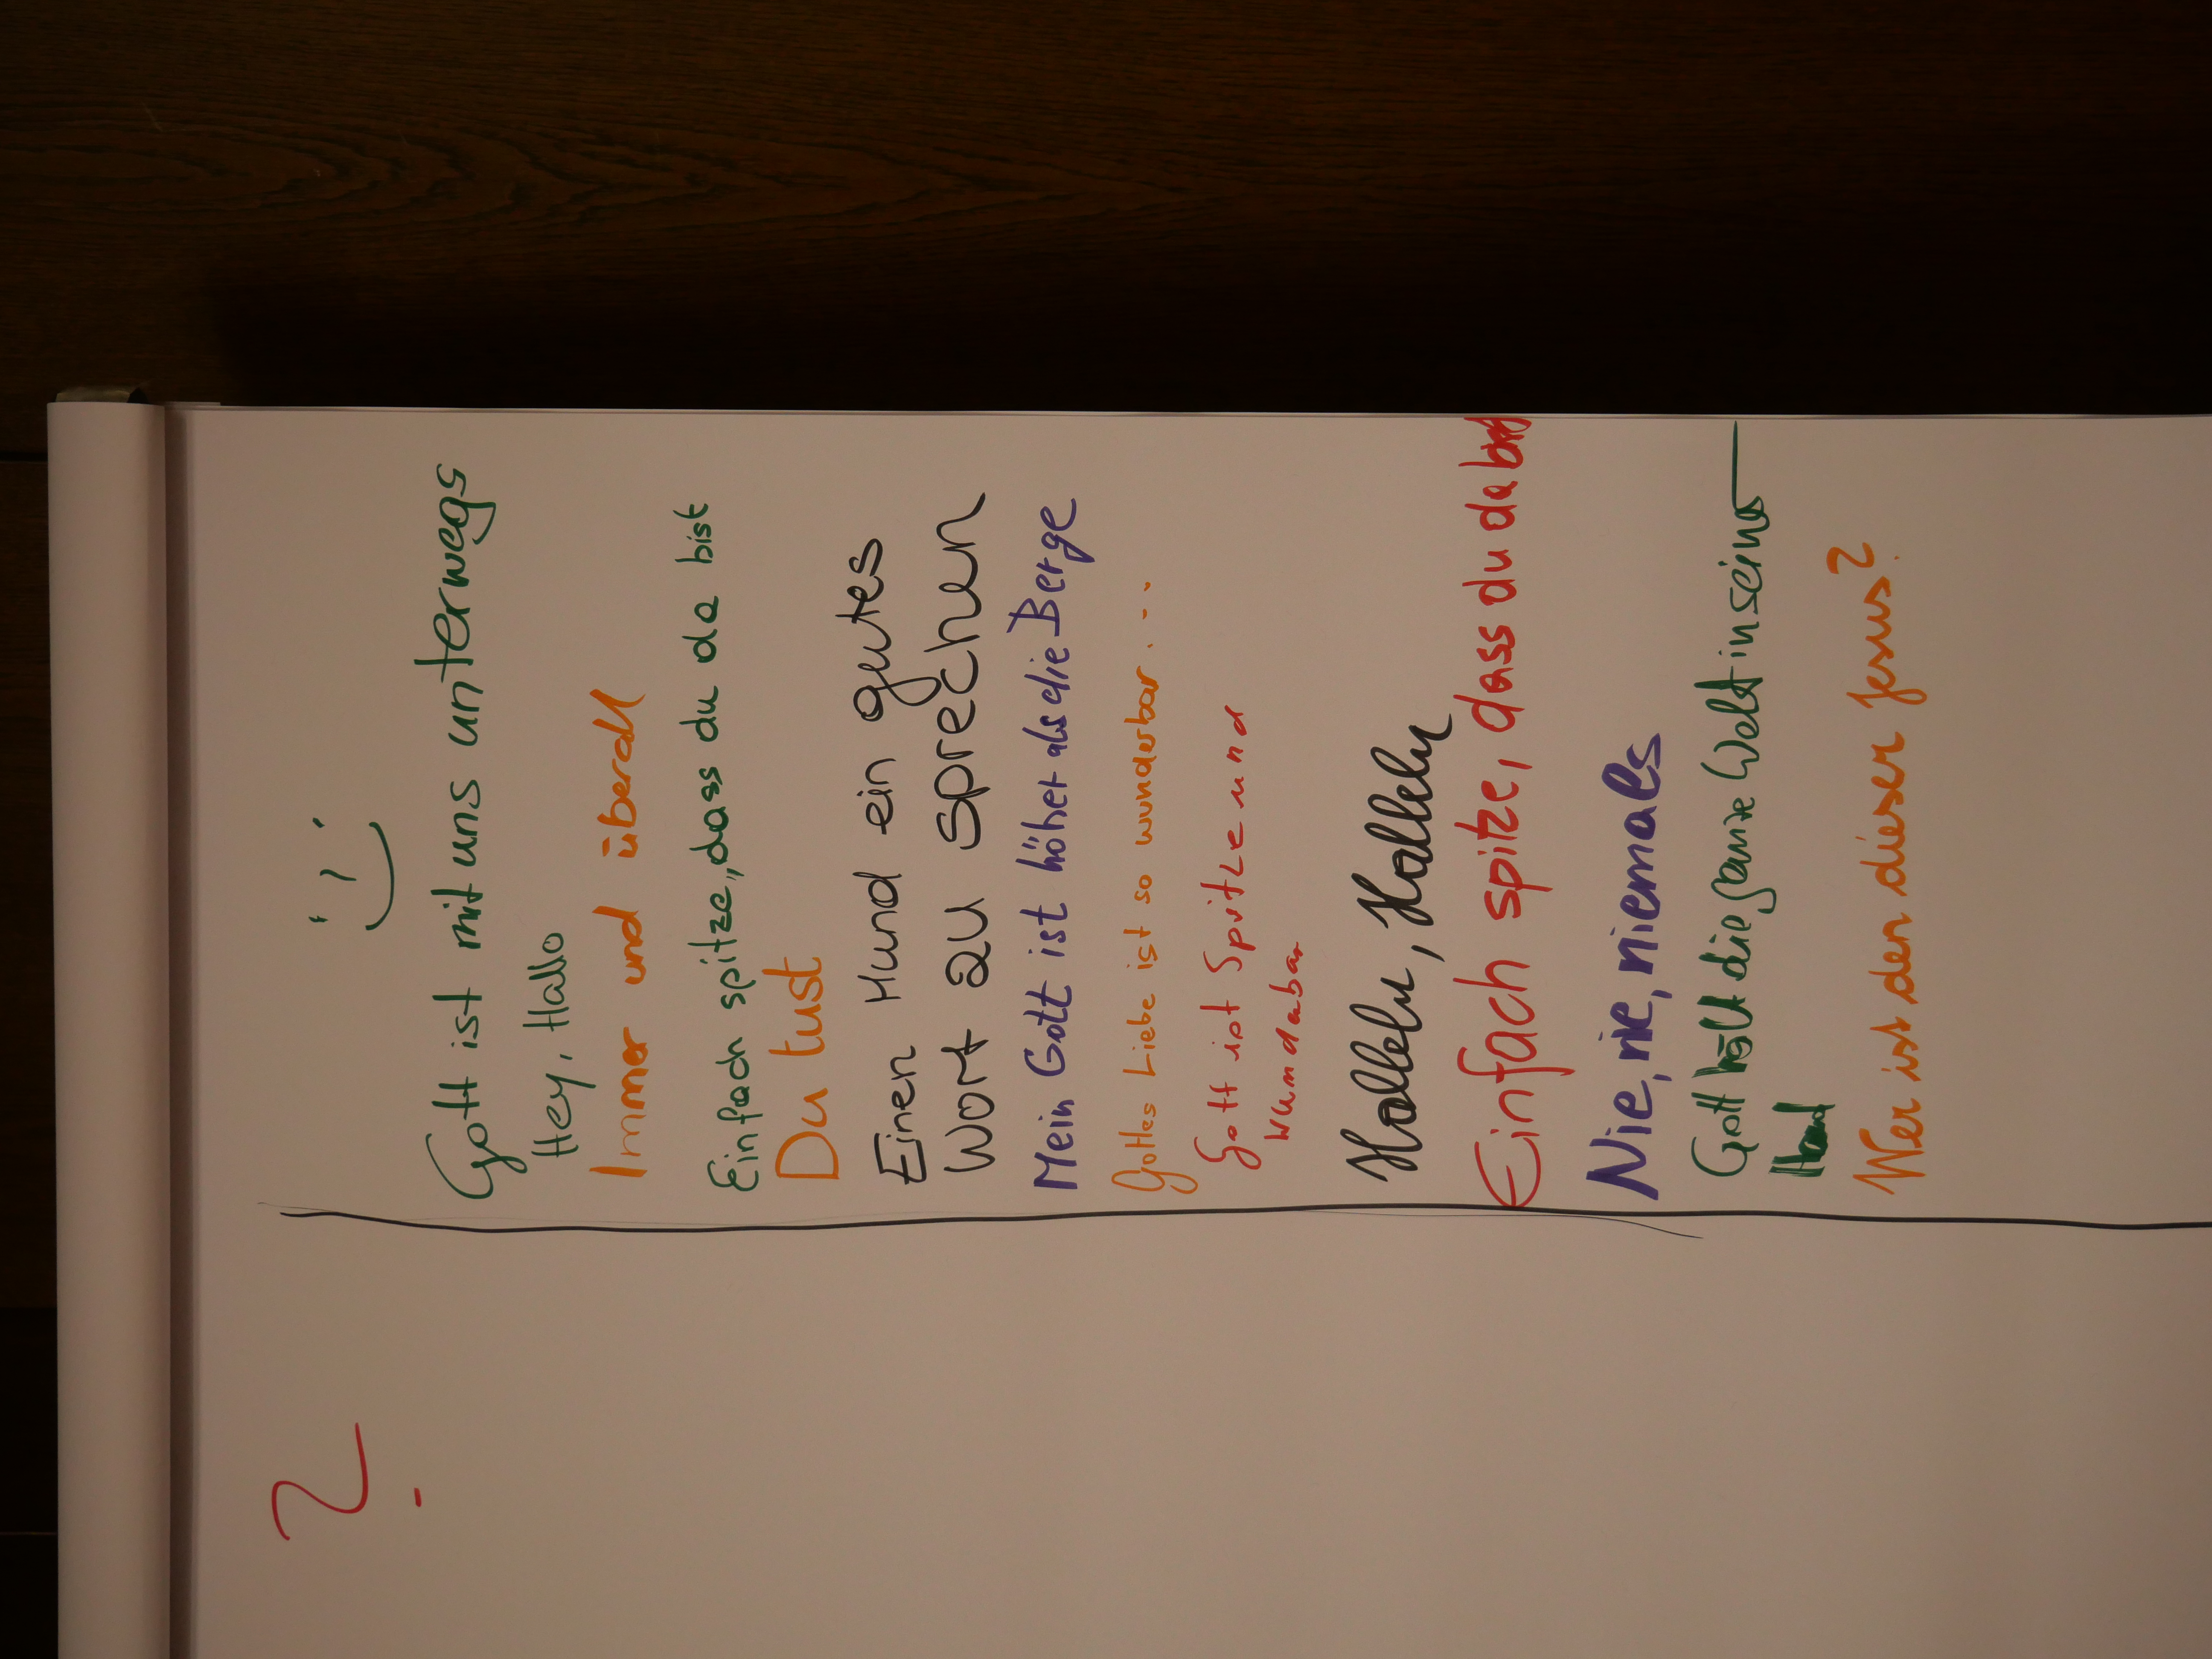 ?
Gott ist mit uns unterwegs
Hey, Hallo
Immer und überall
Einfach spitze, dass du da bist
Du tust
Einen Mund ein gutes
Wort zu sprechen
Mein Gott ist höher als die Berge
Gottes Liebe ist so wunderbar...
Gott ist Spitze und
wundebar
Hallelu, Hallelu
Einfach spitze, dass du da bist
Nie, nie, niemals
Gott hält die ganze Welt in seiner
Hand
Wer ist den dieser Jesus?